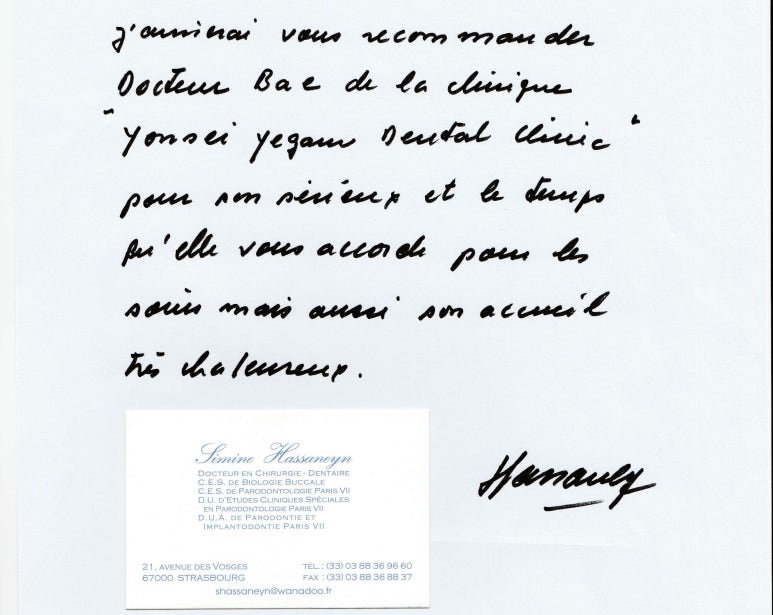 J'aimerai vous recommander
Docteur Bae de la clinique
"Yonsei Yegam Dental Clinic"
pour son sérieux et le temps
qu'elle vous accorde pour les
soins mais aussi son accueil
très chaleureux.
Simine Hassaneyn
DOCTEUR EN CHIRURGIE - DENTAIRE
C.E.S. DE BIOLOGIE BUCCALE
C.E.S. DE PARODONTOLOGIE PARIS VII
D.U. D'ETUDES CLINIQUES SPÉCIALES
EN PARODONTOLOGIE PARIS VII
D.U.A. DE PARODONTIE ET
IMPLANTODONTIE PARIS VII
Hassaneyn
21, AVENUE DES VOSGES
67000 STRASBOURG
TÉL. : (33) 03 88 36 96 60
FAX : (33) 03 88 36 88 37
shassaneyn@wanadoo.fr